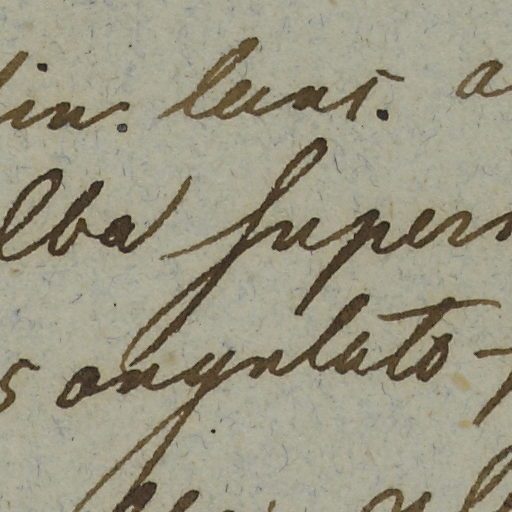 lin. lans. a
lba super
s angulato-